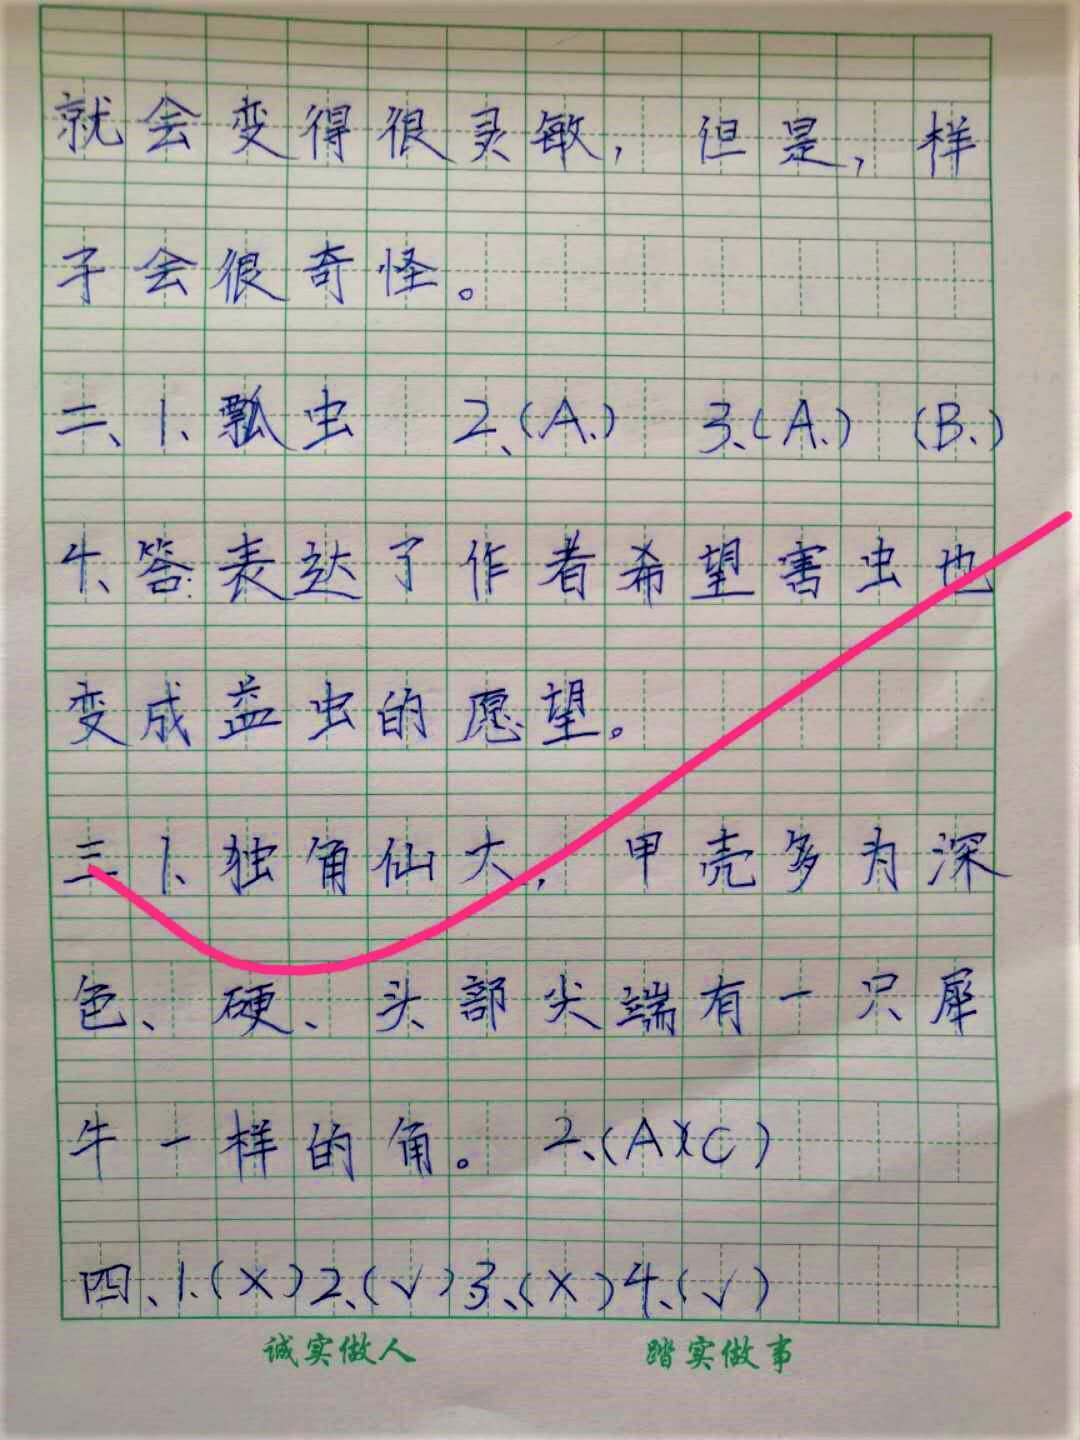 就会变得很灵敏，但是，样
子会很奇怪。
二、1、瓢虫 2、(A.) 3、(A.) (B.)
4、答：表达了作者希望害虫也
变成益虫的愿望。
三1、独角仙大，甲壳多为深
色、硬、头部尖端有一只犀
牛一样的角。 2、(A)(C)
四、1.(×)2、(√)3、(×)4、(√)
诚实做人 踏实做事